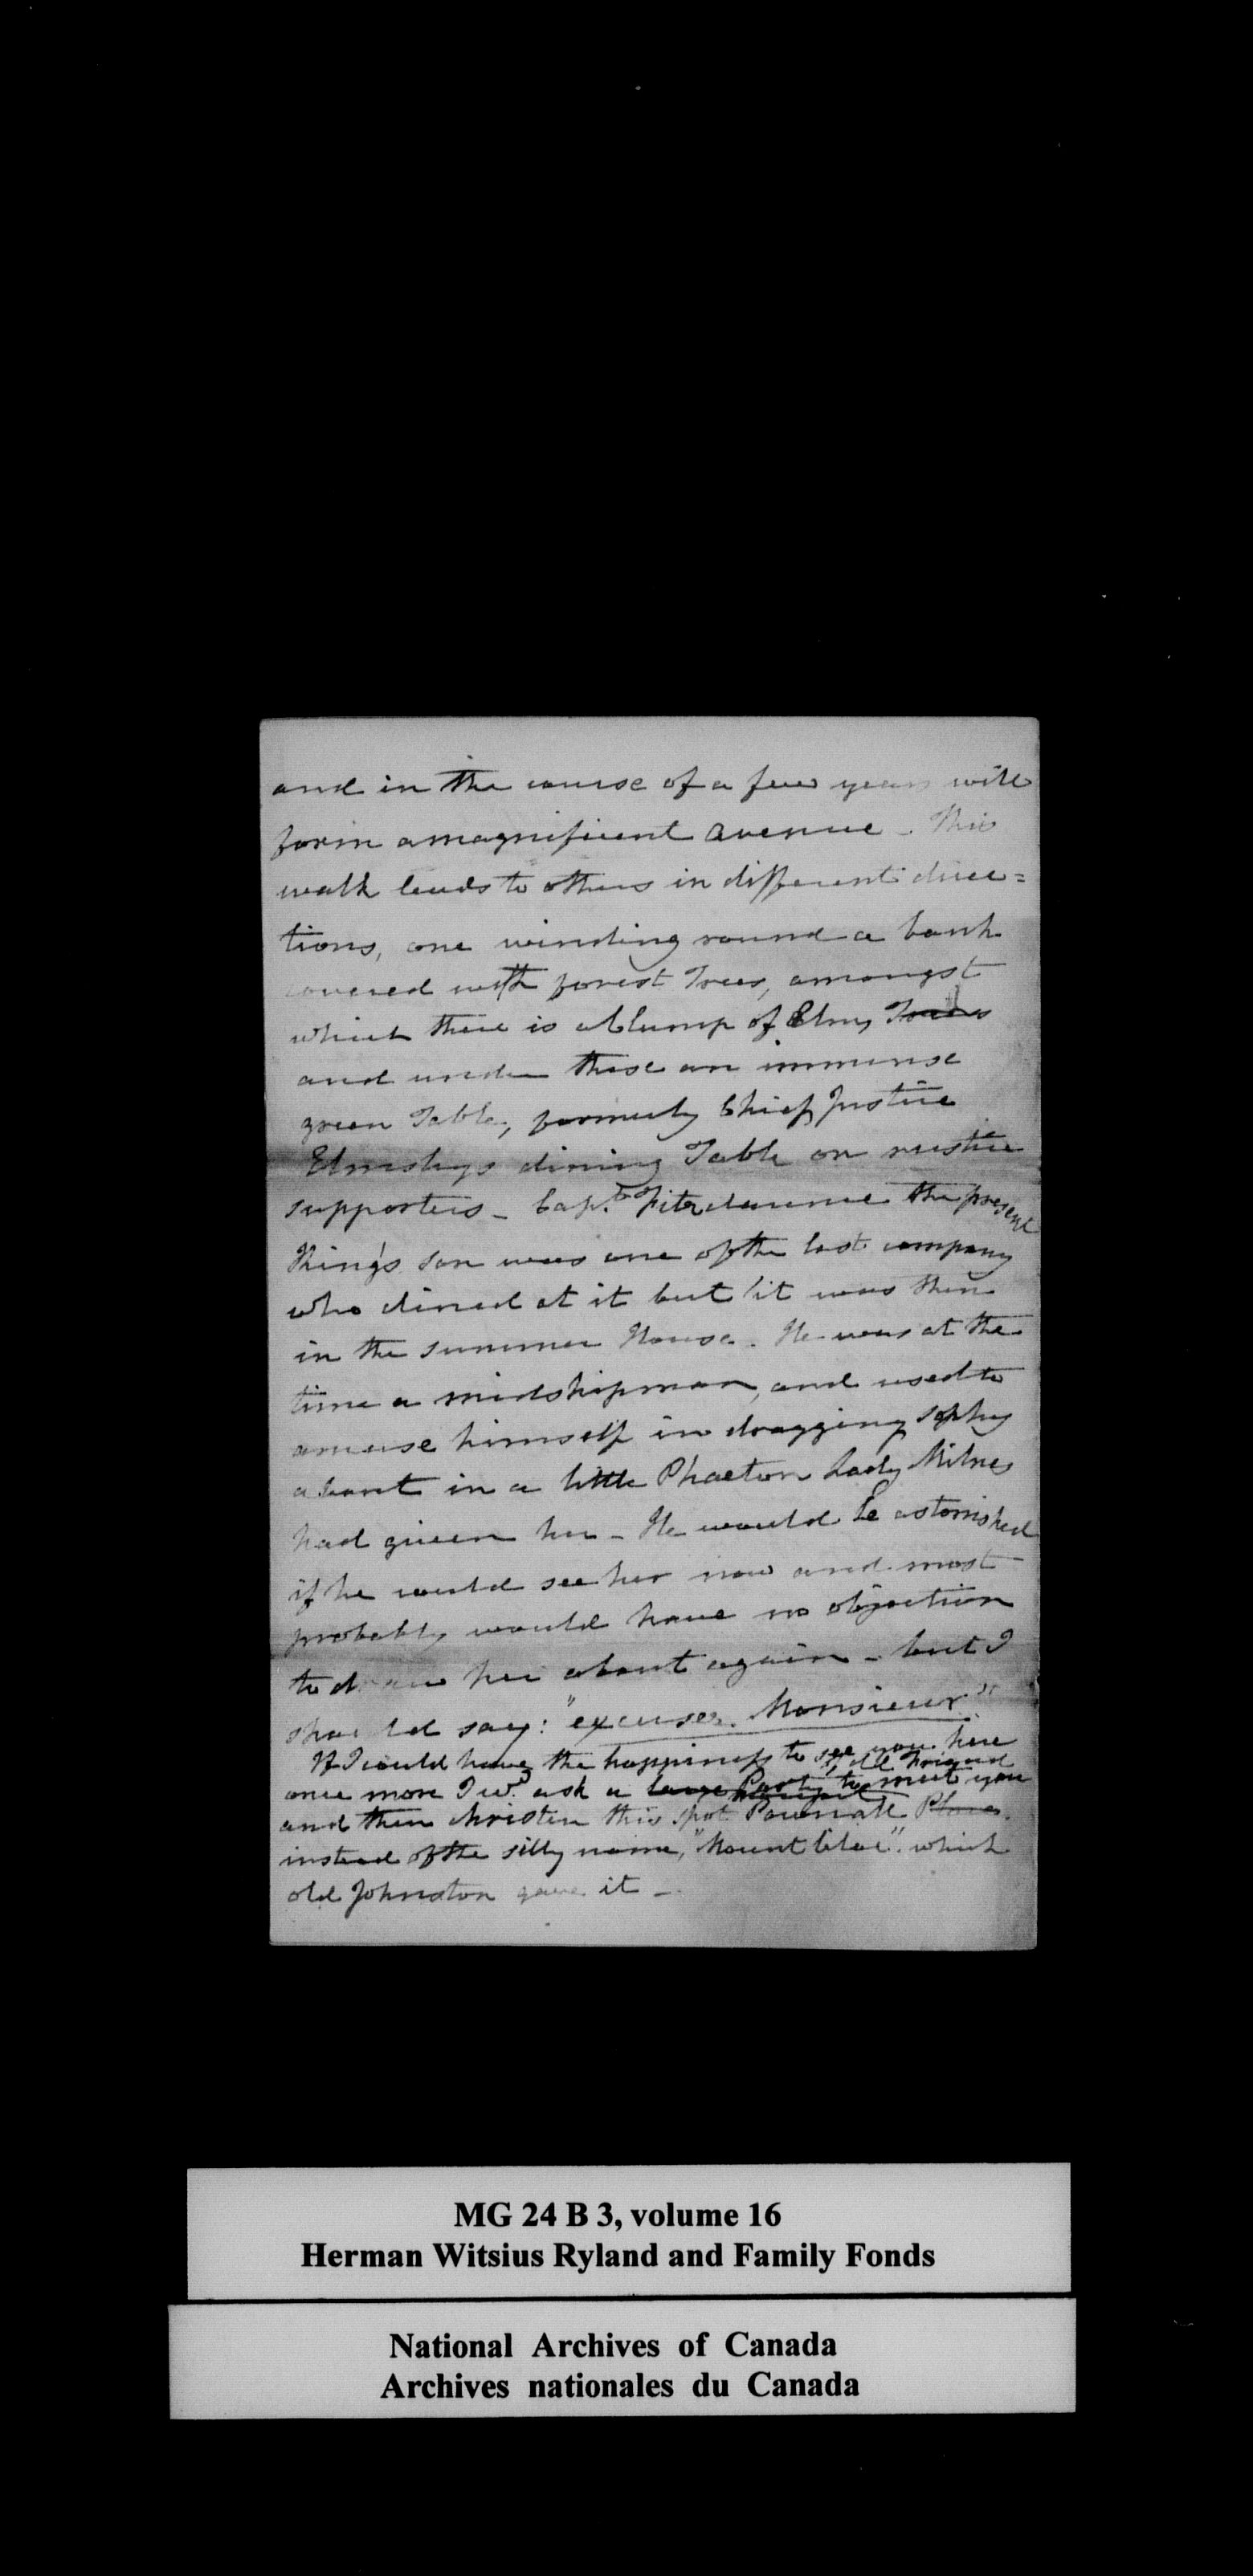 and in the course of a few years will
form a magnificent avenue - This
walk leads to others in different direc=
tions, one winding round a bank
covered with forest Trees, amongst
which there is a Clump of Elms
and under these an immense
green Table, formerly Chief Justice
Elmsley's dining Table on rustic
supporters - Capt. Fitzclarence the present
King's son was one of the last company
who dined at it but it was then
in the summer House. He was at the
time a midshipman, and used to
amuse himself in dragging Sophy
about in a little Phaeton Lady Milnes
had given her - He would be astonished
if he could see her now and most
probably would have no objection
to draw her about again - but I
should say: "excusez Monsieur"
If I could have the happiness to see you here
once more I wd. ask a large Party to meet you
and then christen this spot Pownall Place
instead of the silly name, "Mount Lilac" which
old Johnston gave it -
MG 24 B 3, volume 16
Herman Witsius Ryland and Family Fonds
National Archives of Canada
Archives nationales du Canada